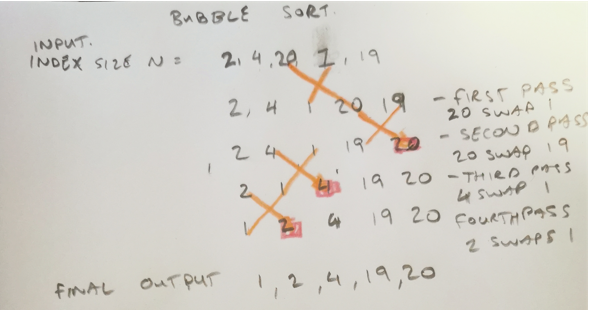 BUBBLE SORT.
INPUT.
INDEX SIZE N = 2, 4, 20 1, 19
2, 4 1 20 19 - FIRST PASS
20 SWAP 1
2 4 1 19 20 - SECOND PASS
20 SWAP 19
2 1 4 19 20 - THIRD PASS
4 SWAP 1
1 2 4 19 20 FOURTH PASS
2 SWAPS 1
FINAL OUTPUT 1, 2, 4, 19, 20